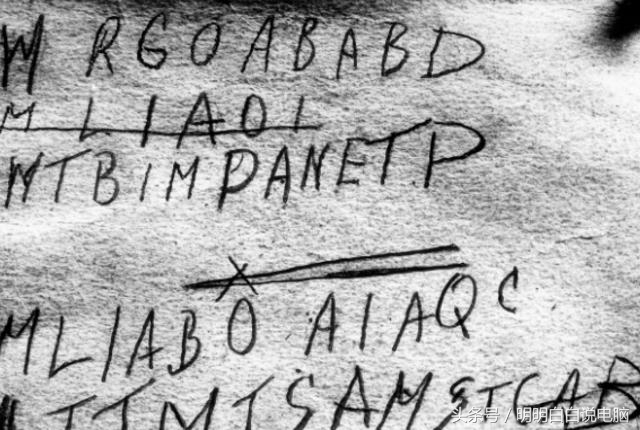 W RGOABABD
MLIAOI
WTBIMPANETP
X
MLIABO AIAQC
ITTMTSAMSTGAB
头条号 / 明明白白说电脑